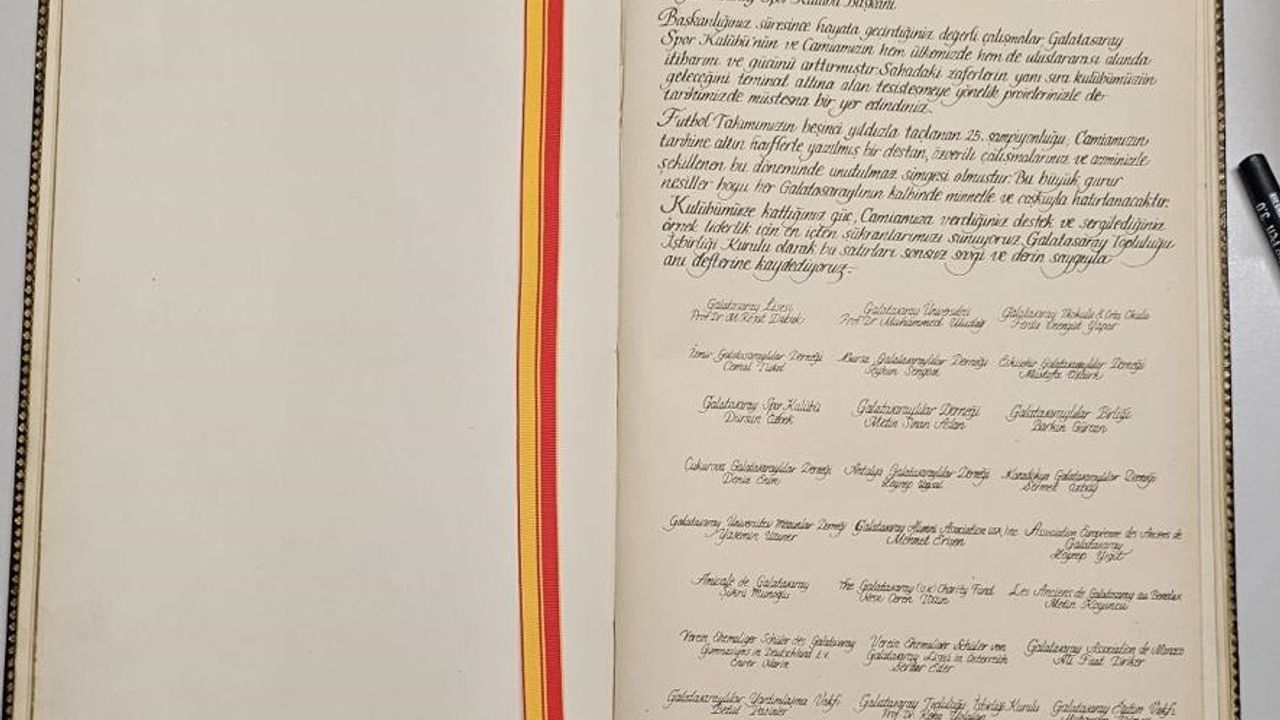 Spor Kulübü Başkanı
Başkanlığınız süresince hayata geçirdiğiniz değerli çalışmalar Galatasaray
Spor Kulübü'nün ve Camiamızın hem ülkemizde hem de uluslararası alanda
itibarını ve gücünü arttırmıştır. Sahadaki zaferlerin yanı sıra kulübümüzün
geleceğini teminat altına alan tesisleşmeye yönelik projelerinizle de
tarihimizde müstesna bir yer edindiniz.
Futbol Takımımızın beşinci yıldızla taçlanan 25. şampiyonluğu, Camiamızın
tarihine altın harflerle yazılmış bir destan, özverili çalışmalarınız ve azminizle
şekillenen bu döneminde unutulmaz simgesi olmuştur. Bu büyük gurur
nesiller boyu her Galatasaraylının kalbinde minnetle ve coşkuyla hatırlanacaktır.
Kulübümüze kattığınız güç, Camiamıza verdiğiniz destek ve sergilediğiniz
örnek liderlik için en içten şükranlarımızı sunuyoruz. Galatasaray Topluluğu
İşbirliği Kurulu olarak bu satırları sonsuz sevgi ve derin saygıyla
anı defterine kaydediyoruz.
Galatasaray Lisesi Galatasaray Üniversitesi Galatasaray İlkokulu & Orta Okulu
Prof. Dr. M. Prof. Dr. Muhammed Uludağ
İzmir Galatasaraylılar Derneği Bursa Galatasaraylılar Derneği Eskişehir Galatasaraylılar Derneği
Cemal Tükel Mustafa Öztürk
Galatasaray Spor Kulübü Galatasaraylılar Derneği Galatasaraylılar Birliği
Dursun Özbek Metin Sinan Aslan
Çukurova Galatasaraylılar Derneği Antalya Galatasaraylılar Derneği Karadeniz Galatasaraylılar Derneği
Zeynep
Galatasaray Üniversitesi Mezunlar Derneği Galatasaray Alumni Association USA, Inc. Association Européenne des Anciens de
Yasemin Mehmet Galatasaray
Zeynep Yiğit
Amicale de Galatasaray The Galatasaray (U.K) Charity Fund Les Anciens de Galatasaray au Benelux
Şükrü Ceren Tosun Metin Koyuncu
Verein Ehemaliger Schüler des Galatasaray Verein Ehemaliger Schüler von Galatasaray Association de Monaco
Gymnasiums in Deutschland e.V. Galatasaray Lisesi in Österreich Ali Fuat
Serdar Eder
Galatasaraylılar Yardımlaşma Vakfı Galatasaray Topluluğu İşbirliği Kurulu Galatasaray Eğitim Vakfı
Prof. Dr.